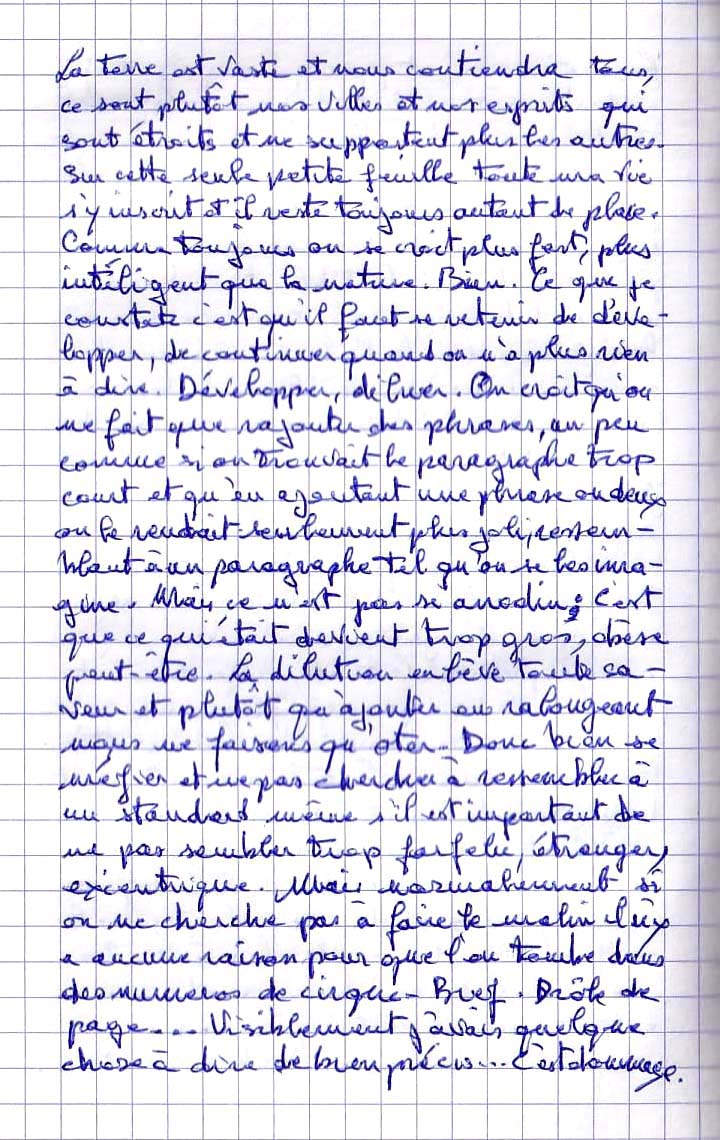 La terre est vaste et nous contiendra tous,
ce sont plutôt nos villes et nos esprits qui
sont étroits et ne supportent plus les autres.
Sur cette seule petite feuille toute ma vie
s'y inscrit et il reste toujours autant de place.
Comme toujours on se croit plus fort, plus
intéligent que la nature. Bien. Ce que je
constate c'est qu'il faut se retenir de déve-
lopper, de continuer quand on n'a plus rien
à dire. Développer, diluer. On croit qu'on
ne fait que rajouter des phrases, un peu
comme si on trouvait le paragraphe trop
court et qu'en ajoutant une phrase ou deux
on le rendait seulement plus joli, ressem-
blant à un paragraphe tel qu'on se les ima-
gine. Mais ce n'est pas si anodin : C'est
que ce qui était devient trop gros, obèse
peut-être. La dilution enlève toute sa-
veur et plutôt qu'ajouter en rallongeant
nous ne faisons qu'ôter. Donc bien se
méfier et ne pas chercher à ressembler à
un standard même s'il est important de
ne pas sembler trop farfelu, étranger,
excentrique. Mais normalement si
on ne cherche pas à faire le malin il n'y
a aucune raison pour que l'on tombe dans
des numeros de cirque - Bref. Drôle de
page... Visiblement j'avais quelque
chose à dire de bien précis... C'est dommage.